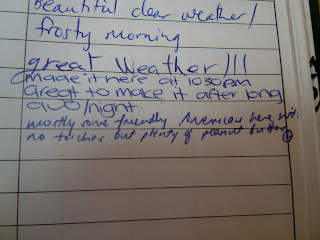 beautiful clear weather/
frosty morning
great Weather!!!
made it here at 1050pm
Great to make it after long
day/night.
mostly some friendly American here with
no torches but plenty of peanut butter